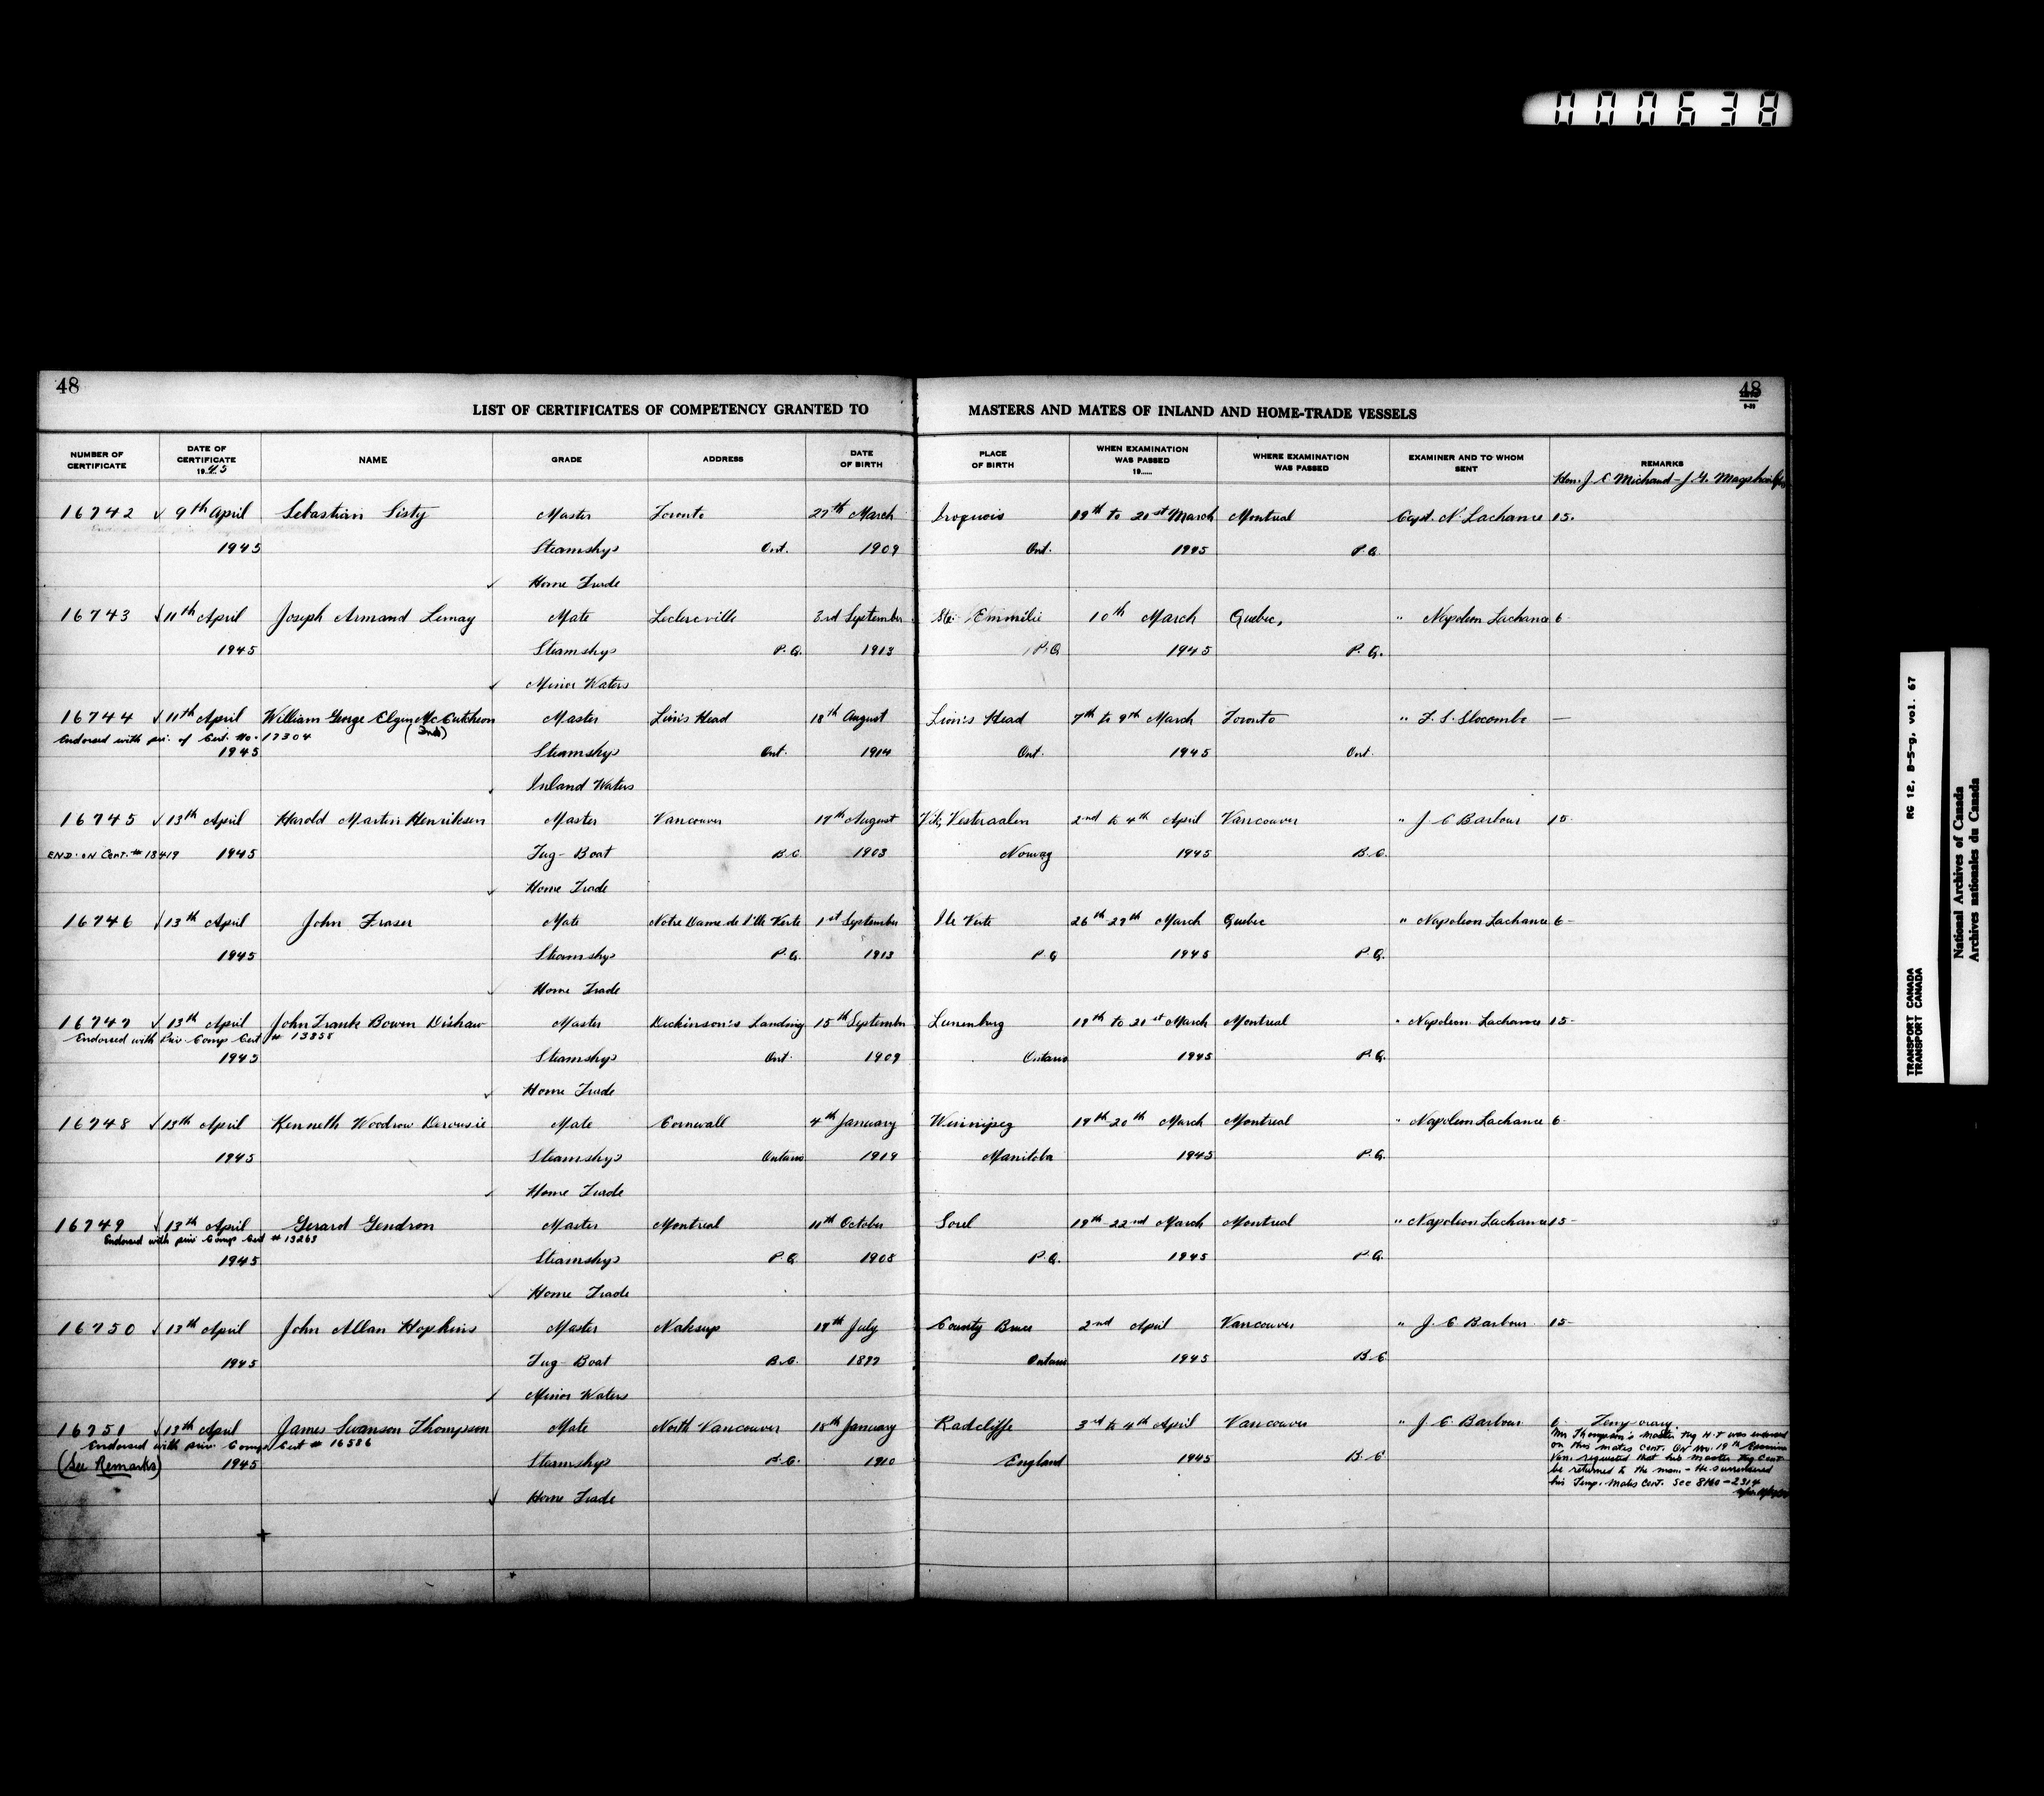 000638
48
48
LIST OF CERTIFICATES OF COMPETENCY GRANTED TO MASTERS AND MATES OF INLAND AND HOME-TRADE VESSELS
NUMBER OF CERTIFICATE DATE OF CERTIFICATE 1945 NAME GRADE ADDRESS DATE OF BIRTH PLACE OF BIRTH WHEN EXAMINATION WAS PASSED 19...... WHERE EXAMINATION WAS PASSED EXAMINER AND TO WHOM SENT REMARKS
Hon. J E Michaud - J. G.
16742 ✓ 9th April Sebastian Sisty Master Toronto 27th March Iroquois 19th to 21st March Montreal Capt. N. Lachance 15.
1945 Steamship Ont. 1909 Ont. 1945 P.Q.
✓ Home Trade
16743 ✓ 11th April Joseph Armand Lemay Mate Leclercville 3rd September Ste. Emmélie 10th March Quebec, " Napoleon Lachance 6-
1945 Steamship P.Q. 1913 P.Q 1945 P.Q.
✓ Minor Waters
16744 ✓ 11th April William George Elgin McCutcheon Master Lion's Head 18th August Lion's Head 7th to 9th March Toronto " F. S. Slocombe —
Endorsed with pri. of Cert. No. 17304 (2nd)
1945 Steamship Ont. 1914 Ont. 1945 Ont.
Inland Waters
16745 ✓ 13th April Harold Martin Henriksen Master Vancouver 17th August Vik, Vesteraalen 2nd to 4th April Vancouver " J. E Barbour 15-
END. ON Cert. # 18419 1945 Tug-Boat B.C. 1903 Norway 1945 B.C.
✓ Home Trade
16746 ✓ 13th April John Fraser Mate Notre Dame de l'Ile Verte 1st September Ile Verte 26th-27th March Quebec " Napoleon Lachance 6-
1945 Steamship P.Q. 1913 P.Q 1945 P.Q.
✓ Home Trade
16747 ✓ 13th April John Frank Bowen Dishaw Master Dickinson's Landing 15th September Lunenburg 19th to 21st March Montreal " Napoleon Lachance 15-
Endorsed with Priv. Comp Cert # 13858
1945 Steamship Ont. 1909 Ontario 1945 P.Q.
✓ Home Trade
16748 ✓ 13th April Kenneth Woodrow Derousie Mate Cornwall 4th January Winnipeg 19th-20th March Montreal " Napoleon Lachance 6-
1945 Steamship Ontario 1919 Manitoba 1945 P.Q.
✓ Home Trade
16749 ✓ 13th April Gerard Gendron Master Montreal 11th October Sorel 19th-22nd March Montreal " Napoleon Lachance 15-
Endorsed with priv Comp Cert # 13263
1945 Steamship P.Q 1908 P.Q. 1945 P.Q.
✓ Home Trade
16750 ✓ 13th April John Allan Hopkins Master Nakusp 19th July County Bruce 2nd April Vancouver " J. E Barbour 15-
1945 Tug-Boat B.C. 1897 Ontario 1945 B.C
✓ Minor Waters
16751 ✓ 13th April James Swanson Thompson Mate North Vancouver 18th January Radcliffe 3rd to 4th April Vancouver " J. E Barbour 6. Temporary.
Endorsed with priv. Comp. Cert # 16586
(See Remarks) 1945 Steamship B.C. 1910 England 1945 B.C
✓ Home Trade
Mr Thompson's Master Tug H.T was endorsed
on this mates Cert. On Nov. 19th Examiner
Van. requested that his Master Tug Cert
be returned to the man. - He surrendered
his Temp. Mates Cert. See 8160-2314
TRANSPORT CANADA RG 12, B-5-g, vol. 67
TRANSPORT CANADA
National Archives of Canada
Archives nationales du Canada